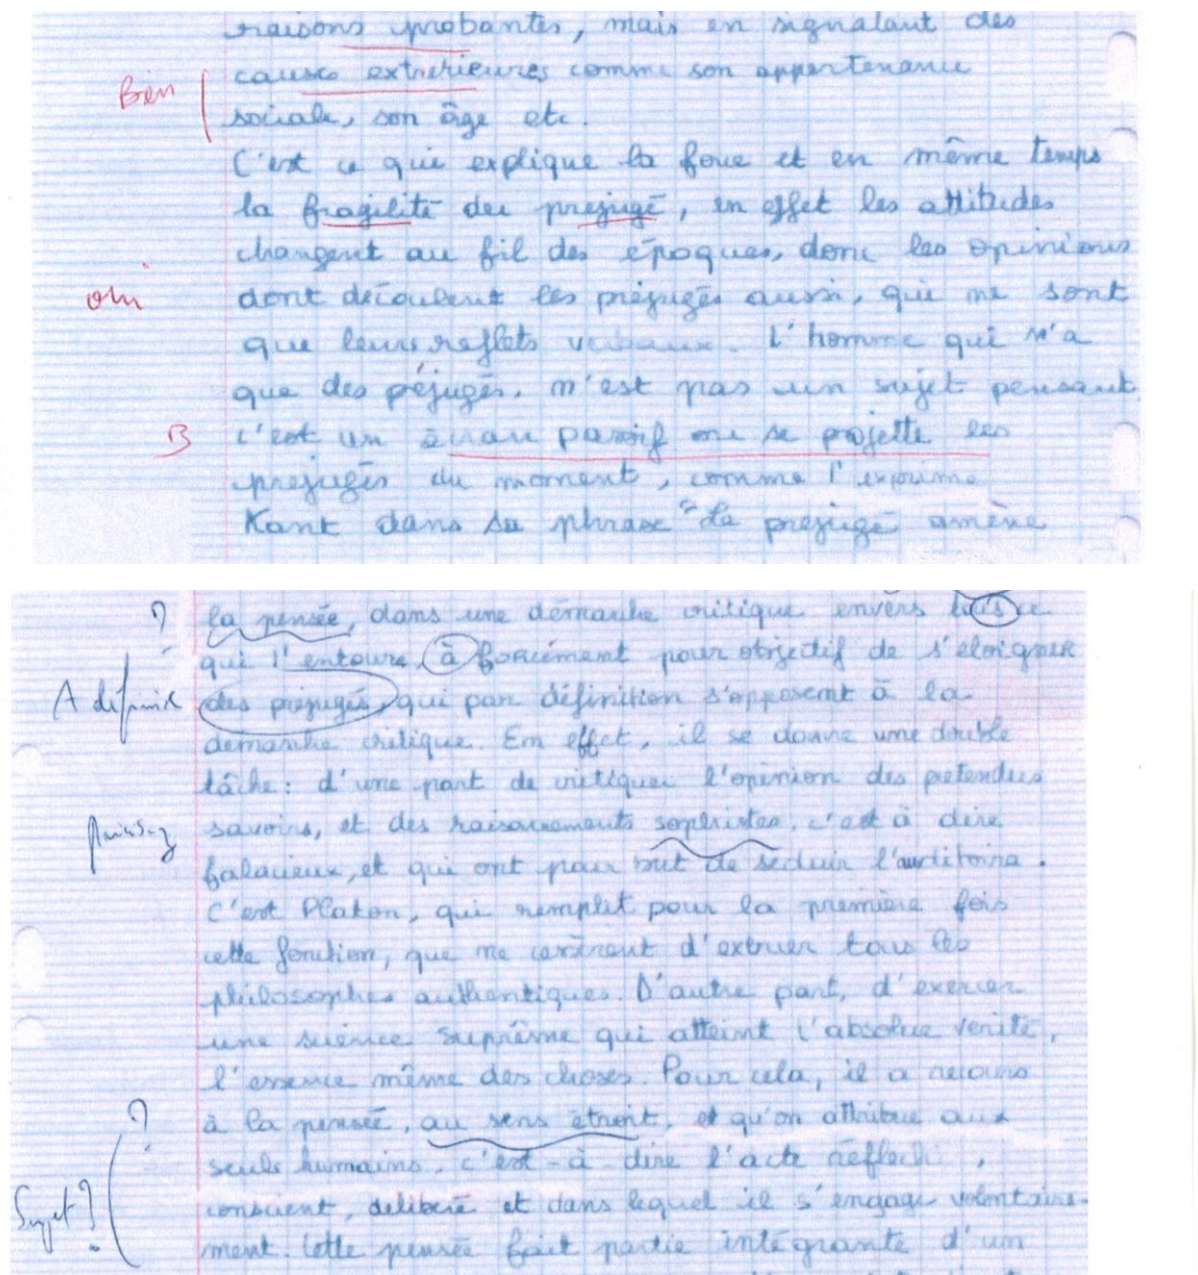 raisons probantes, mais en signalant des
Bien
causes extérieures comme son appartenance
sociale, son âge etc.
C'est ce qui explique la force et en même temps
la fragilité du préjugé, en effet les attitudes
changent au fil des époques, donc les opinions
oui
dont découlent les préjugés aussi, qui ne sont
que leurs reflets verbaux. L'homme qui n'a
que des préjugés, n'est pas un sujet pensant
B
c'est un écran passif ou se projette les
préjugés du moment, comme l'exprime
Kant dans sa phrase "Le préjugé amène
?
la pensée, dans une démarche critique envers tous ce
qui l'entoure, à forcément pour objectif de s'éloigner
A définir
des préjugés, qui par définition s'opposent à la
démarche critique. En effet, il se donne une double
tâche: d'une part de critiquer l'opinion des pretendus
savoirs, et des raisonnements sophistes, c'est à dire
falacieux, et qui ont pour but de séduir l'auditoire.
C'est Platon, qui remplit pour la première fois
cette fonction, que ne cessèrent d'exercer tous les
philosophes authentiques. D'autre part, d'exercer
une science suprême qui atteint l'absolue verité,
l'essence même des choses. Pour cela, il a recours
?
à la pensée, au sens étroit, et qu'on attribue aux
seuls humains, c'est-à-dire l'acte réflechi,
Sujet?
conscient, deliberé et dans lequel il s'engage volontaire-
ment. Cette pensée fait partie intégrante d'un